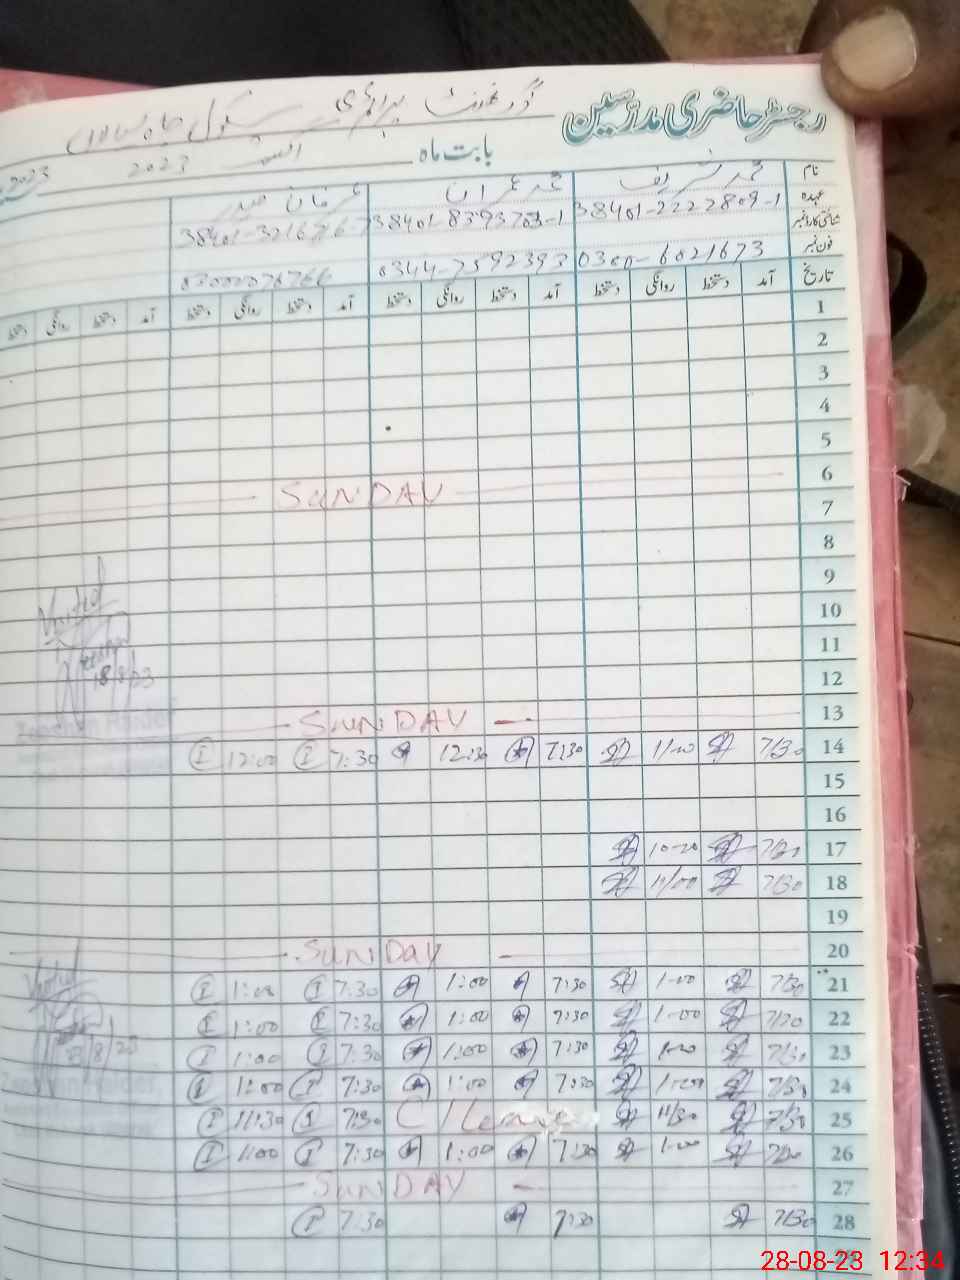 رجسٹر حاضری مدرسین گورنمنٹ پرائمری سکول چاہ
بابت ماہ اگست 2023
نام محمد شریف محمد عمران عرفان حیدر
عہدہ
شناختی کارڈ نمبر 38401-2227809-1 38401-8393703-1
فون نمبر 0300-6021673 0344-7592393
تاریخ آمد دستخط روانگی دستخط آمد دستخط روانگی دستخط آمد دستخط روانگی دستخط آمد دستخط روانگی دستخط
1
2
3
4
5
6 SUNDAY
7
8
9
10
11
12
18/8/23
Zeeshan Haider
13 SUNDAY
14 7/30 11/00 7:30 12:30 7:30 12:00
15
16
17 7/30 10-20
18 7/30 11/00
19
20 SUNDAY
21 7/30 1-00 7:30 1:00 7:30 1:00
22 7/30 1-00 7:30 1:00 7:30 1:00
23 7/30 1-00 7:30 1:00 7:30 1:00
24 7/30 1-00 7:30 1:00 7:30 1:00
Zeeshan Haider
25 7/30 11/30 C/Leave 7:30 11:30
26 7/30 1-00 7:30 1:00 7:30 1:00
27 SUNDAY
28 7/30 7:30 7:30
28-08-23 12:34